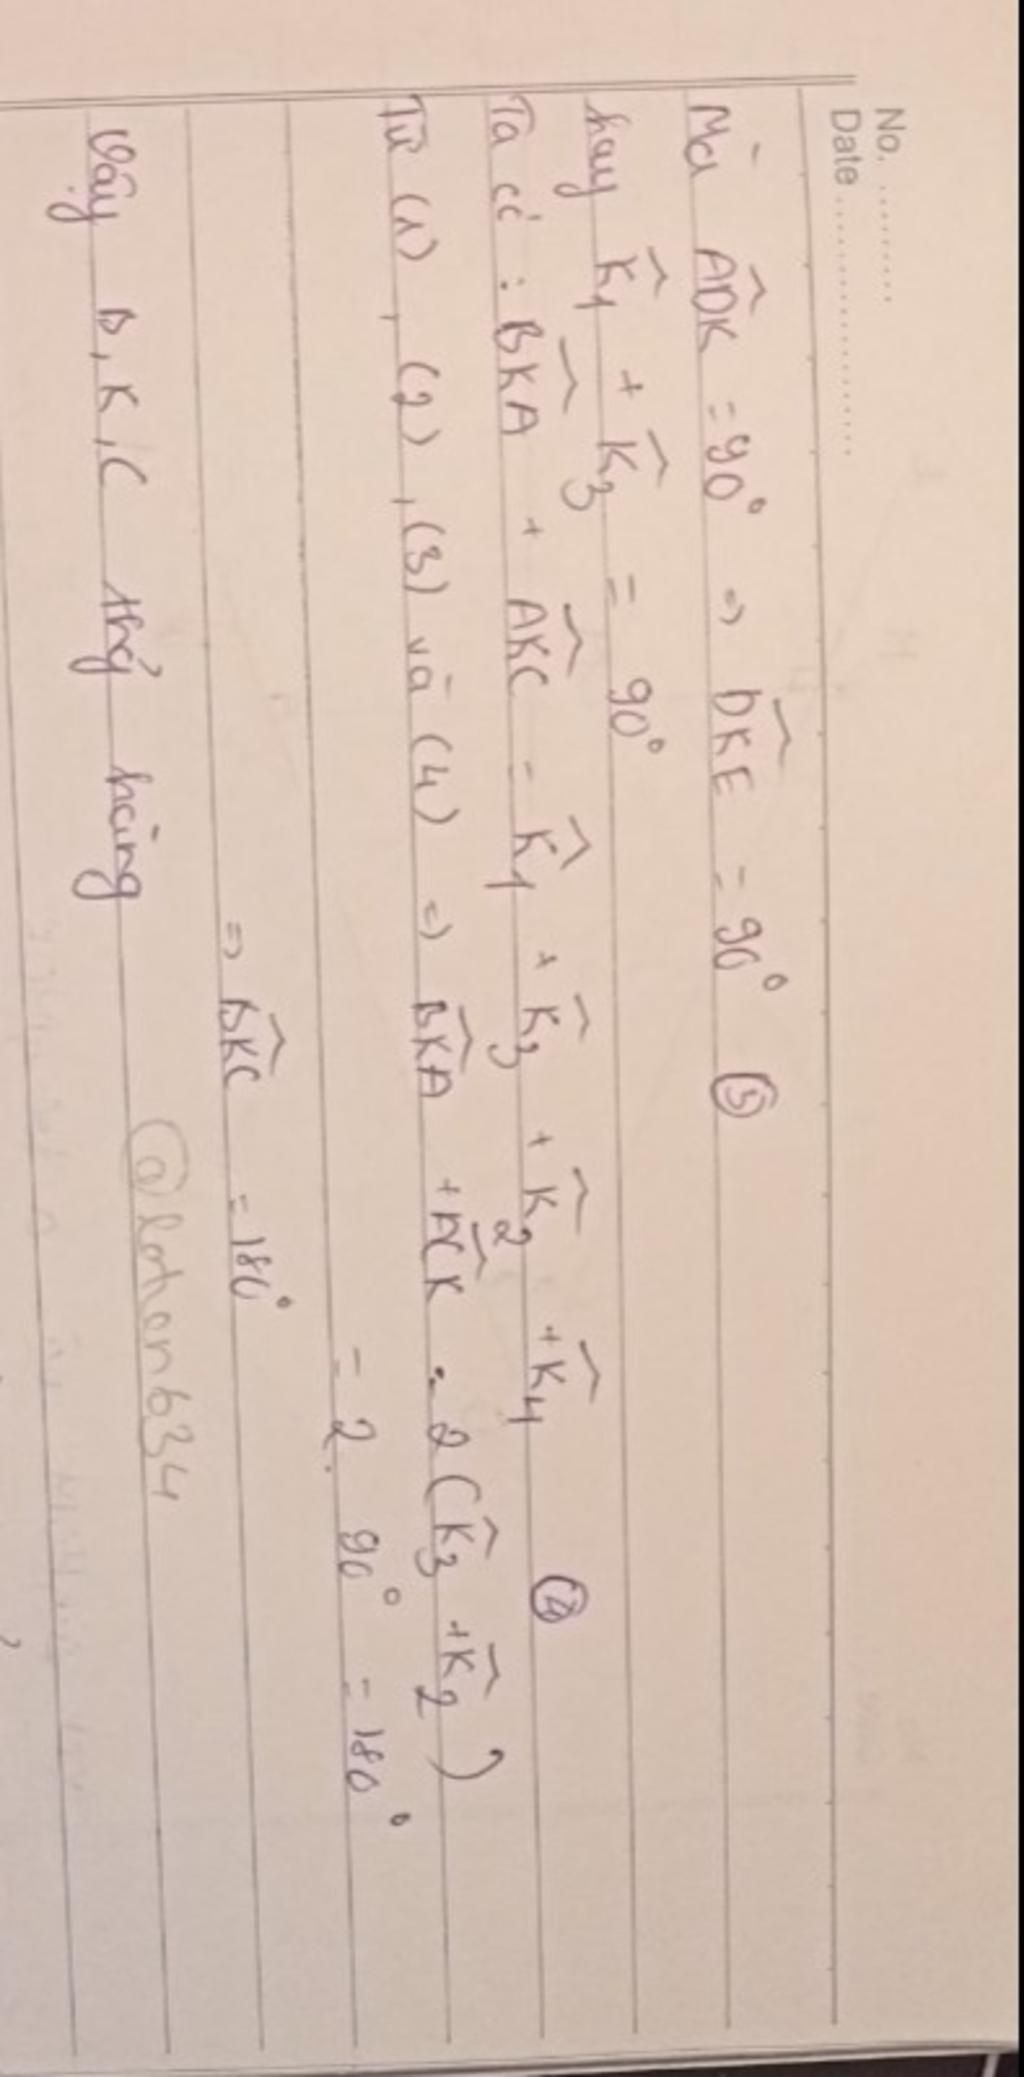 No. .........
Date ..................
Mà ADK̂ = 90° => DKÊ = 90° (3)
hay K̂1 + K̂3 = 90°
Ta có : BKÂ + AKĈ = K̂1 + K̂3 + K̂2 + K̂4 (4)
Từ (1) , (2) , (3) và (4) => BKÂ + ACK̂ = 2 (K̂3 + K̂2)
= 2. 90° = 180°
=> BKĈ = 180°
Vậy B, K, C thẳ hàng